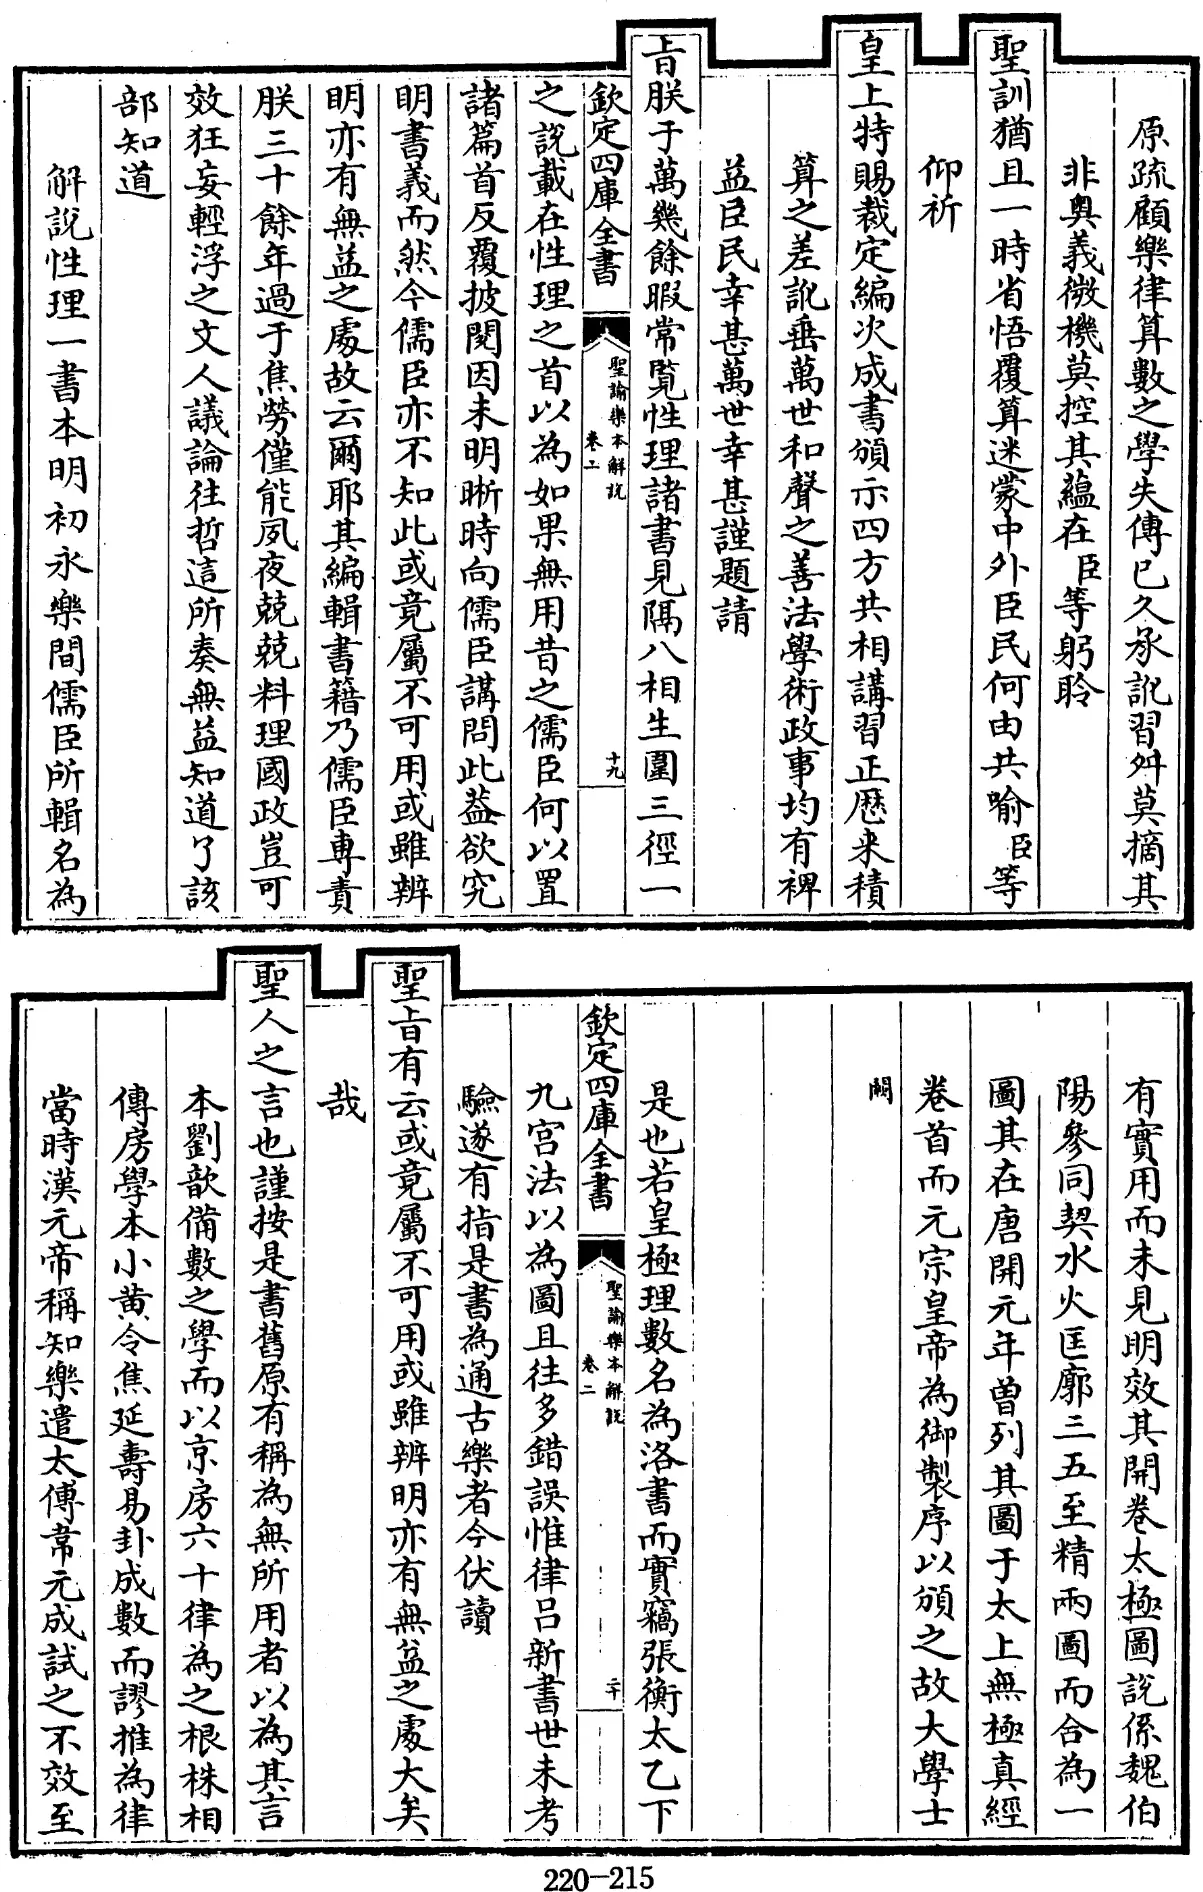 原疏顧樂律算數之學失傳已久承訛習舛莫摘其
非奥義微機莫控其藴在臣等躬聆
聖訓猶且一時省悟覆算迷蒙中外臣民何由共喻臣等
仰祈
皇上特賜裁定編次成書頒示四方共相講習正歴来積
算之差訛垂萬世和聲之善法學術政事均有裨
益臣民幸甚萬世幸甚謹題請
旨朕于萬幾餘暇常覧性理諸書見隔八相生圍三徑一
欽定四庫全書
聖諭樂本解説
卷二
十九
之説載在性理之首以為如果無用昔之儒臣何以置
諸篇首反覆披閱因未明晰時向儒臣講問此葢欲究
明書義而然今儒臣亦不知此或竟屬不可用或雖辨
明亦有無益之處故云爾耶其編輯書籍乃儒臣專責
朕三十餘年過于焦勞僅能夙夜兢兢料理國政豈可
效狂妄輕浮之文人議論往哲這所奏無益知道了該
部知道
解説性理一書本明初永樂間儒臣所輯名為
有實用而未見明效其開卷太極圖説係魏伯
陽參同契水火匡廓三五至精兩圖而合為一
圖其在唐開元年曾列其圖于太上無極真經
卷首而元宗皇帝為御製序以頒之故大學士
闕
是也若皇極理數名為洛書而實竊張衡太乙下
欽定四庫全書
聖諭樂本解説
卷二
二十
九宫法以為圖且往多錯誤惟律吕新書世未考
驗遂有指是書為通古樂者今伏讀
聖旨有云或竟屬不可用或雖辨明亦有無益之處大矣
哉
聖人之言也謹按是書舊原有稱為無所用者以為其言
本劉歆備數之學而以京房六十律為之根株相
傳房學本小黄令焦延壽易卦成數而謬推為律
當時漢元帝稱知樂遣太傅韋元成試之不效至
220-215